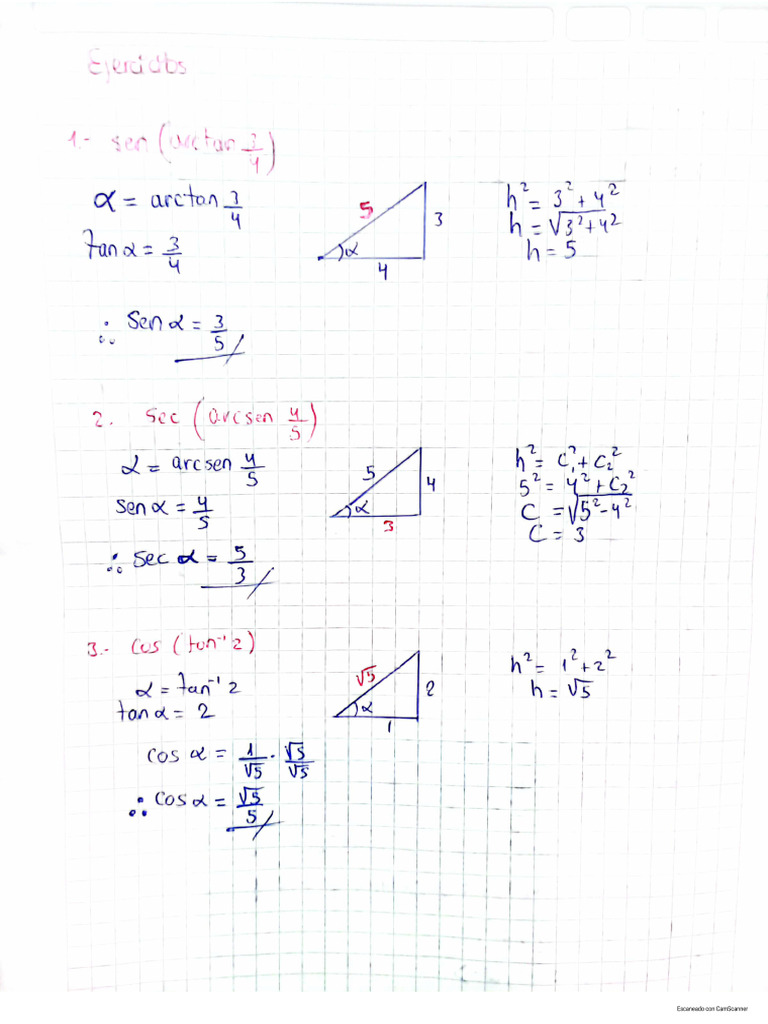 Ejercicios
1.- sen (arctan 3/4)
α = arctan 3/4
tan α = 3/4
5
3
4
α
h² = 3² + 4²
h = √3²+4²
h = 5
∴ Sen α = 3/5
2. Sec (arcsen 4/5)
α = arcsen 4/5
sen α = 4/5
∴ sec α = 5/3
5
4
3
α
h² = C₁² + C₂²
5² = 4² + C₂²
C = √5²-4²
C = 3
3.- Cos (tan⁻¹ 2)
α = tan⁻¹ 2
tan α = 2
√5
2
1
α
h² = 1² + 2²
h = √5
cos α = 1/√5 · √5/√5
∴ cos α = √5/5
Escaneado con CamScanner